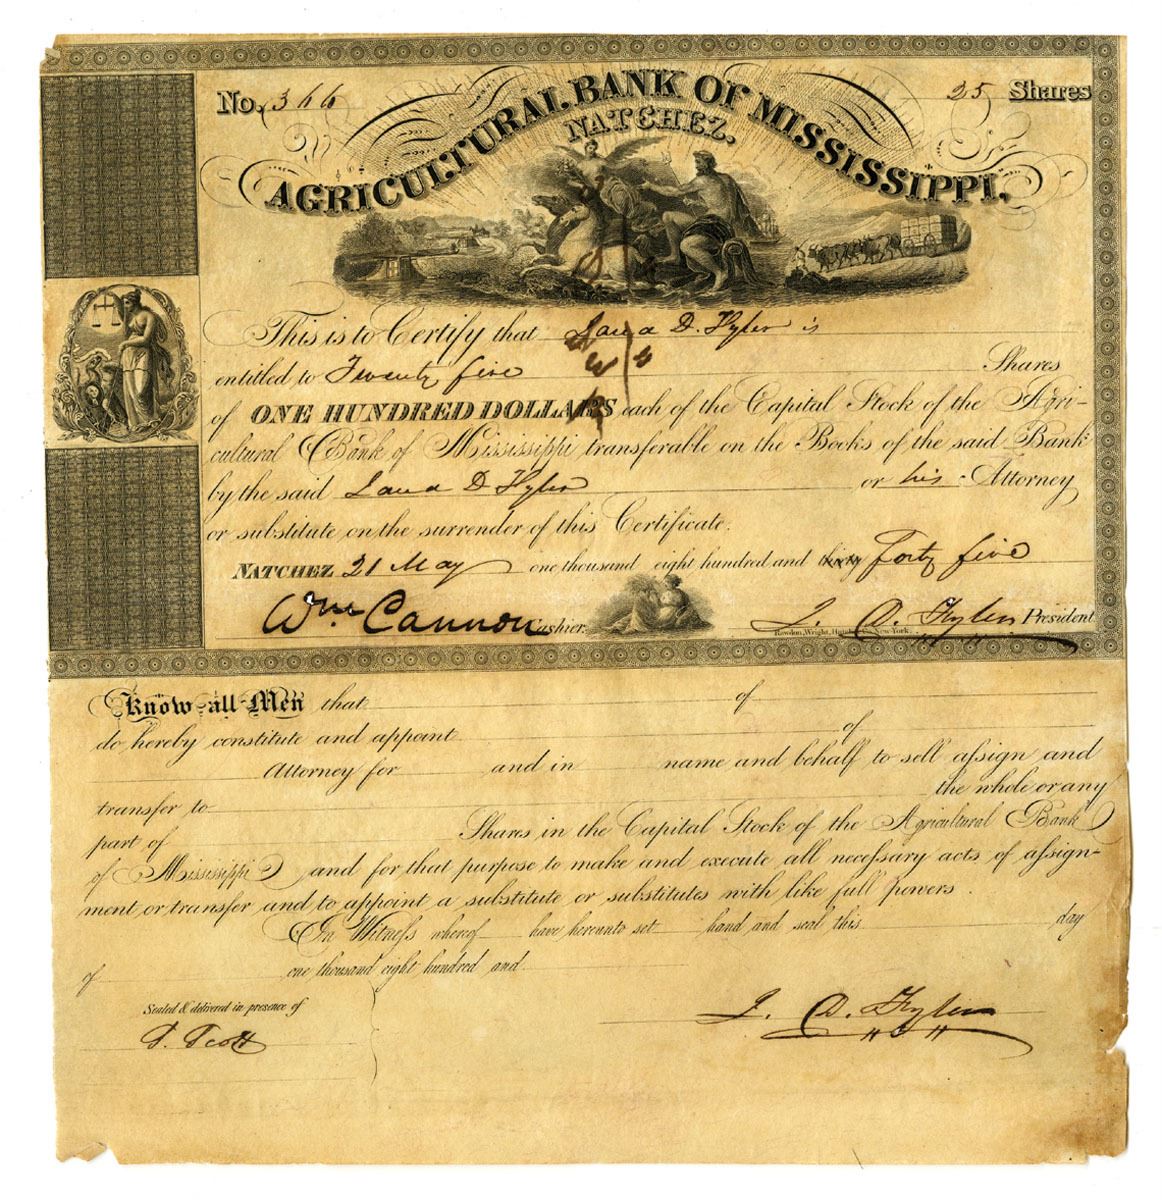 No. 366
25 Shares
AGRICULTURAL BANK OF MISSISSIPPI,
NATCHEZ.
This is to Certify that D. Hyler is
entitled to Twenty five Shares
of ONE HUNDRED DOLLARS each of the Capital Stock of the Agri-
cultural Bank of Mississippi transferable on the Books of the said Bank
by the said D Hyler or his Attorney
or substitute on the surrender of this Certificate.
NATCHEZ 21 May one thousand eight hundred and thirty Forty five
Wm Cannon Cashier. D. Hyler President
Rawdon, Wright, Hatch & Co. New-York.
Know all Men that of
do hereby constitute and appoint of
Attorney for and in name and behalf to sell assign and
transfer to the whole or any
part of Shares in the Capital Stock of the Agricultural Bank
of Mississippi and for that purpose to make and execute all necessary acts of assign-
ment or transfer and to appoint a substitute or substitutes with like full powers.
In Witness whereof have hereunto set hand and seal this day
of one thousand eight hundred and
Sealed & delivered in presence of
D. Hyler
Scott